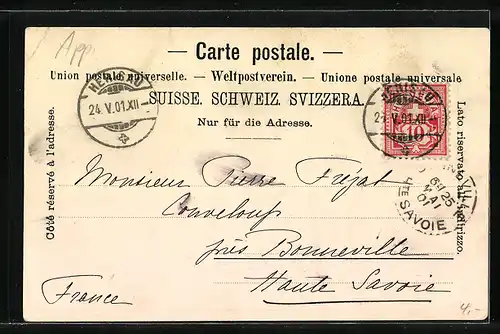 App.
— Carte postale. —
Union postale universelle. — Weltpostverein. — Unione postale universale
SUISSE. SCHWEIZ. SVIZZERA.
Nur für die Adresse.
Côté réservé à l'adresse.
Lato riservato all'indirizzo.
HERISAU
24.V.01.XII
HERISAU
24.V.01.XII
10
6E 25
MAI
01
HTE SAVOIE
Monsieur Pierre Fréjat
Conveloup
près Bonneville
Haute Savoie
France
4,-